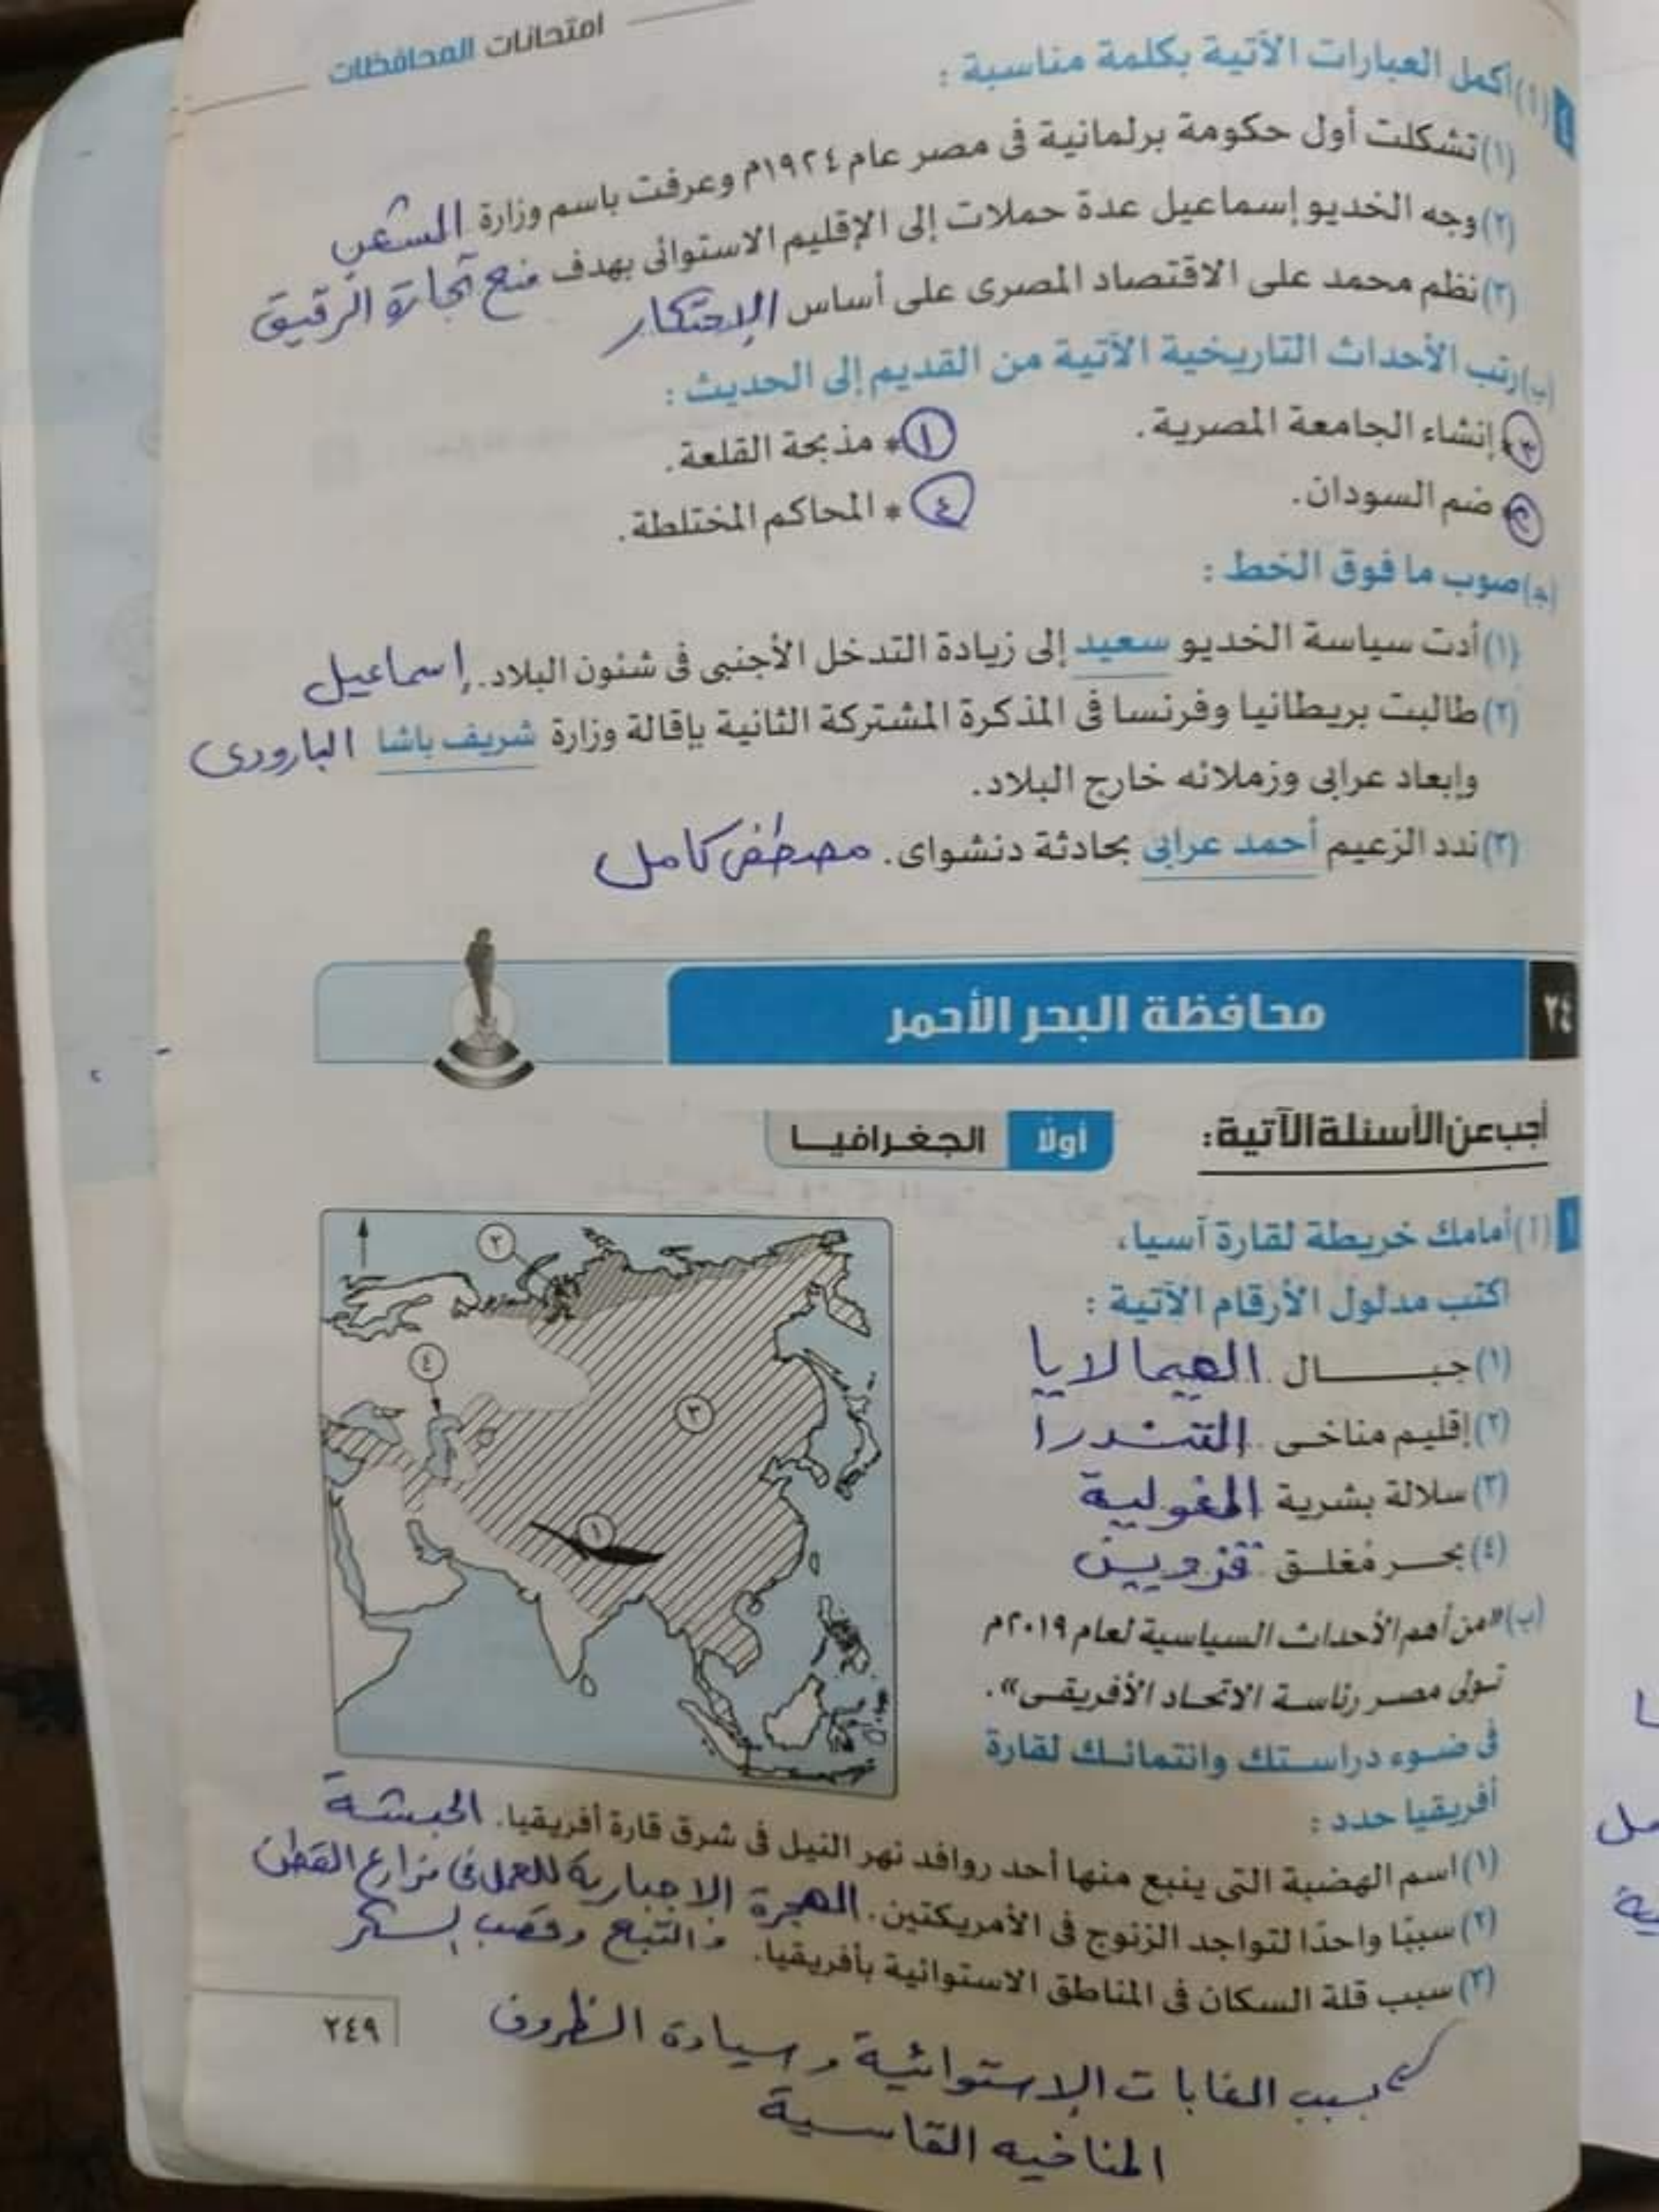 امتحانات المحافظات
٤ (أ) أكمل العبارات الآتية بكلمة مناسبة :
(١) تشكلت أول حكومة برلمانية فى مصر عام ١٩٢٤م وعرفت باسم وزارة الشعب
(٢) وجه الخديو إسماعيل عدة حملات إلى الإقليم الاستوائى بهدف منع تجارة الرقيق
(٣) نظم محمد على الاقتصاد المصرى على أساس الإحتكار
(ب) رتب الأحداث التاريخية الآتية من القديم إلى الحديث :
٣ إنشاء الجامعة المصرية. ١ * مذبحة القلعة.
٢ ضم السودان. ٤ * المحاكم المختلطة.
(ج) صوب ما فوق الخط :
(١) أدت سياسة الخديو سعيد إلى زيادة التدخل الأجنبى فى شئون البلاد. إسماعيل
(٢) طالبت بريطانيا وفرنسا فى المذكرة المشتركة الثانية بإقالة وزارة شريف باشا البارودى
وإبعاد عرابى وزملائه خارج البلاد.
(٣) ندد الزعيم أحمد عرابى بحادثة دنشواى. مصطفى كامل
٢٤ محافظة البحر الأحمر
أجب عن الأسئلة الآتية: أولًا الجغرافيا
١ (أ) أمامك خريطة لقارة آسيا،
اكتب مدلول الأرقام الآتية :
(١) جبال الهيمالايا
(٢) إقليم مناخى التندرا
(٣) سلالة بشرية المغولية
(٤) بحر مُغلق قزوين
٢
٤
٣
١
(ب) «من أهم الأحداث السياسية لعام ٢٠١٩م
تولى مصر رئاسة الاتحاد الأفريقى».
فى ضوء دراستك وانتمائك لقارة
أفريقيا حدد :
(١) اسم الهضبة التى ينبع منها أحد روافد نهر النيل فى شرق قارة أفريقيا. الحبشة
(٢) سببًا واحدًا لتواجد الزنوج فى الأمريكتين. الهجرة الإجبارية للعمل فى مزارع القطن
والتبغ وقصب السكر
(٣) سبب قلة السكان فى المناطق الاستوائية بأفريقيا.
بسبب الغابات الإستوائية وسيادة الظروف
المناخيه القاسية
٢٤٩